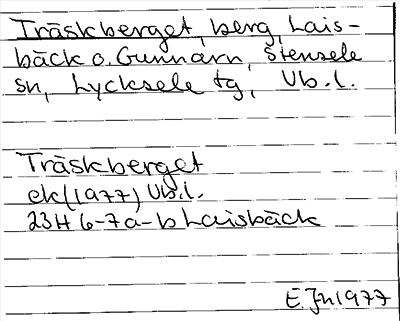 Träskberget, berg, Lais-
bäck o. Gunnarn, Stensele
sn, Lycksele tg, Vb.l.
Träskberget
ek (1977) Vb.l.
23H 6-7a-b Laisbäck
E.Jn 1977